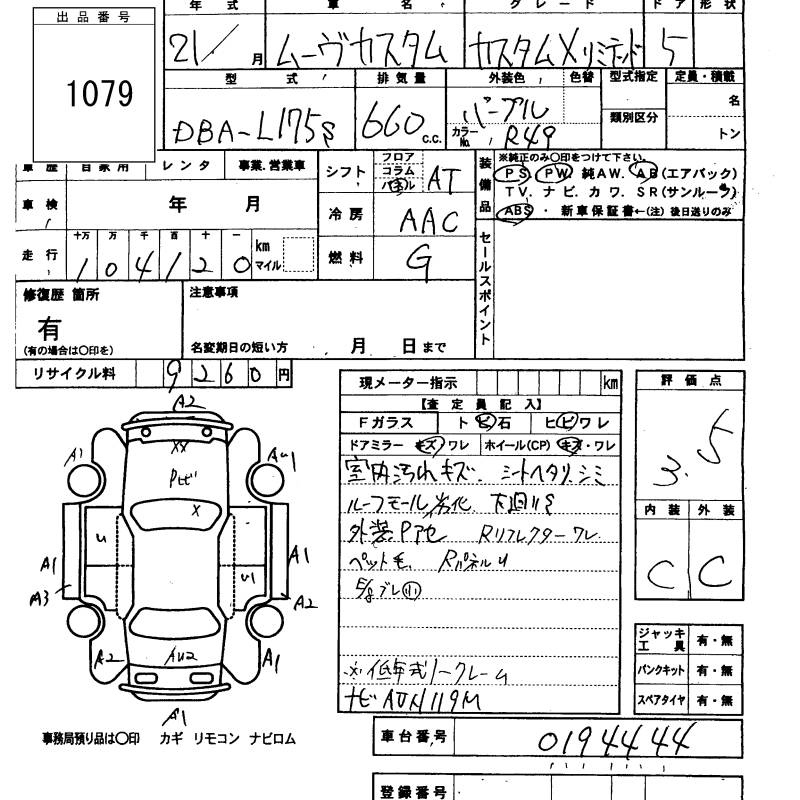 出品番号
1079
年式 車名 グレード ドア 形状
21/ 月 ムーヴカスタム カスタムXリミテッド 5
型式 排気量 外装色 色替 型式指定 定員・積載
DBA-L175S 660 c.c. パープル 名
カラーNo. R49 類別区分 トン
車歴 自家用 レンタ 事業.営業車
シフト フロア コラム パネル AT
装備品 ※純正のみ〇印をつけて下さい。
PS PW 純AW. AB(エアバック)
TV. ナビ. カワ. SR(サンルーフ)
ABS . 新車保証書←(注) 後日送りのみ
車検 年 月
冷房 AAC
走行 十万 万 千 百 十 一 km マイル
104120
燃料 G
セールスポイント
修復歴 箇所
有
(有の場合は〇印を)
注意事項
名変期日の短い方 月 日まで
リサイクル料 9260 円
現メーター指示 km
【査定員記入】
Fガラス トビ石 ヒビワレ
ドアミラー キズ ワレ ホイール(CP) キズ・ワレ
室内汚れキズ. シートヘタリ.シミ
ルーフモール劣化 下回りS
外装P小色 Rリフレクターワレ
ペット毛. RパネルU
E/g ブレ 小
※低年式ノークレーム
ナビAUX119M
評価点
3.5
内装 外装
C C
ジャッキ工具 有・無
パンクキット 有・無
スペアタイヤ 有・無
A2
A1
XX
Pヒビ
AU1
X
U
U1
A1
A3
A1
A2
A2
AU2
A1
A1
事務局預り品は〇印 カギ リモコン ナビロム
車台番号 0194444
登録番号